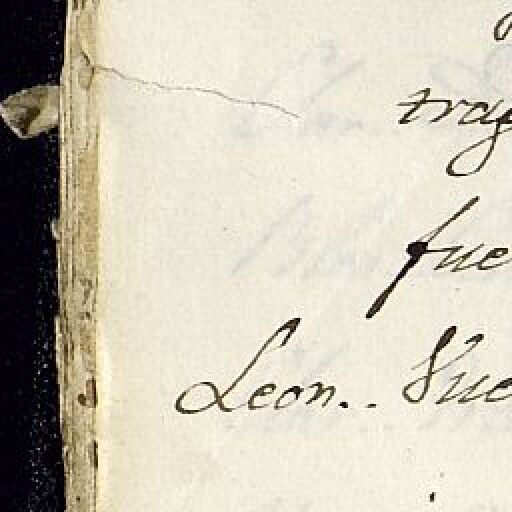 trag
fue
Leon.. Vue